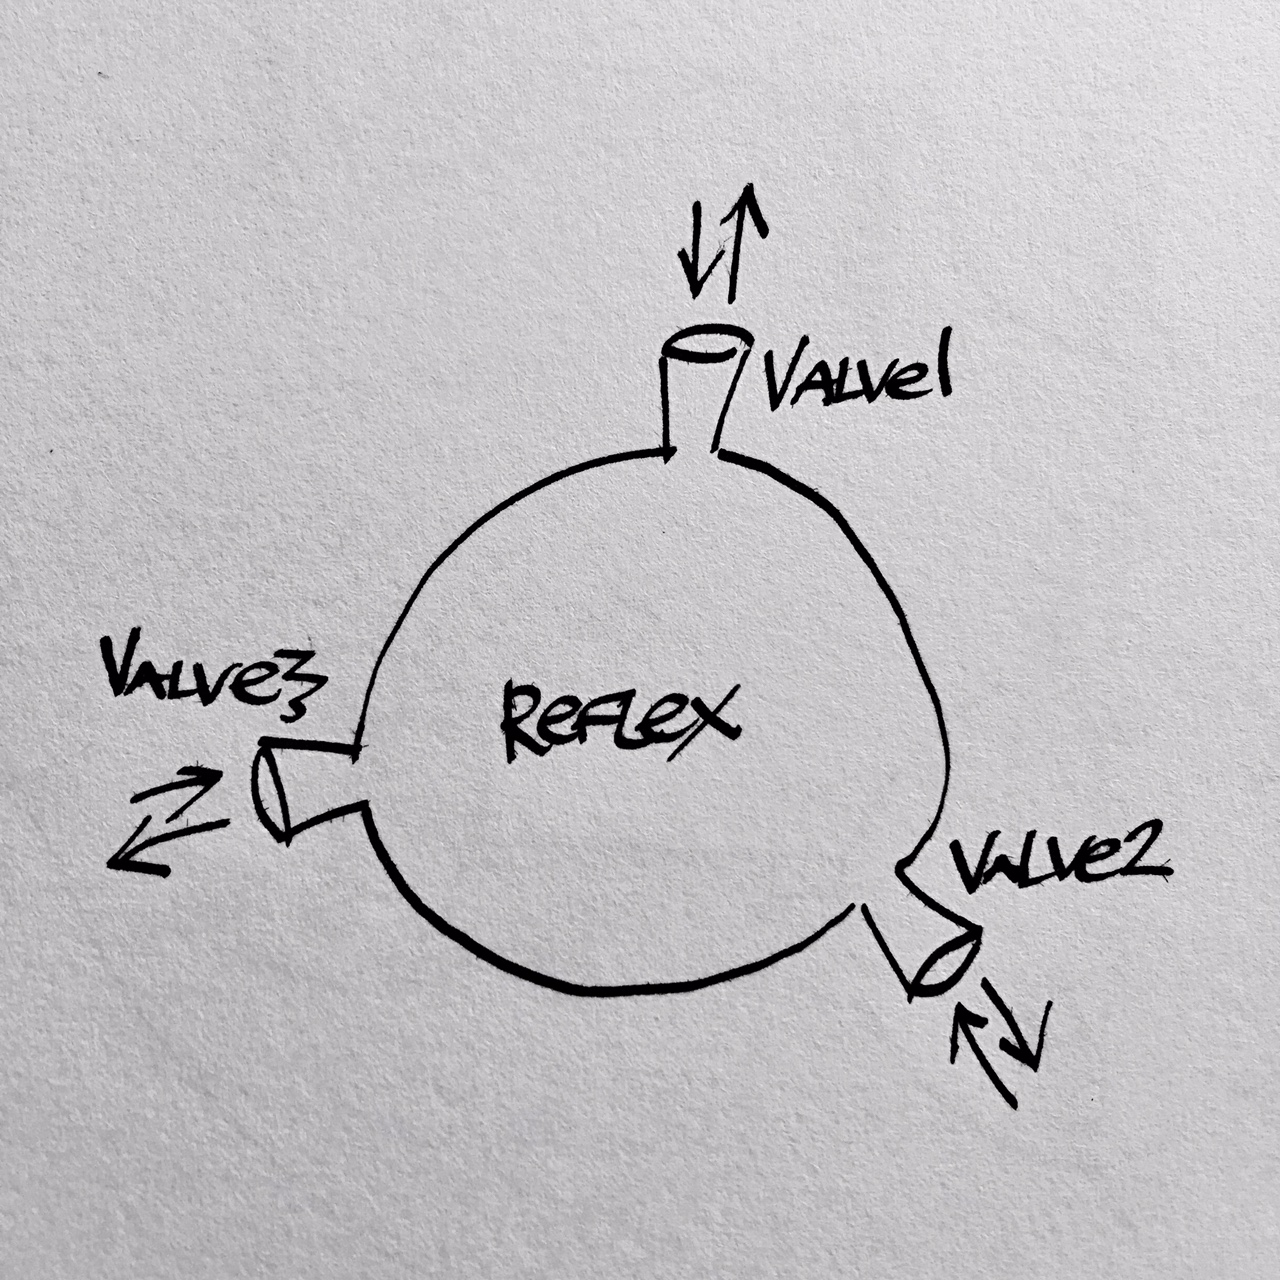 Valve1
Valve3
Reflex
Valve2